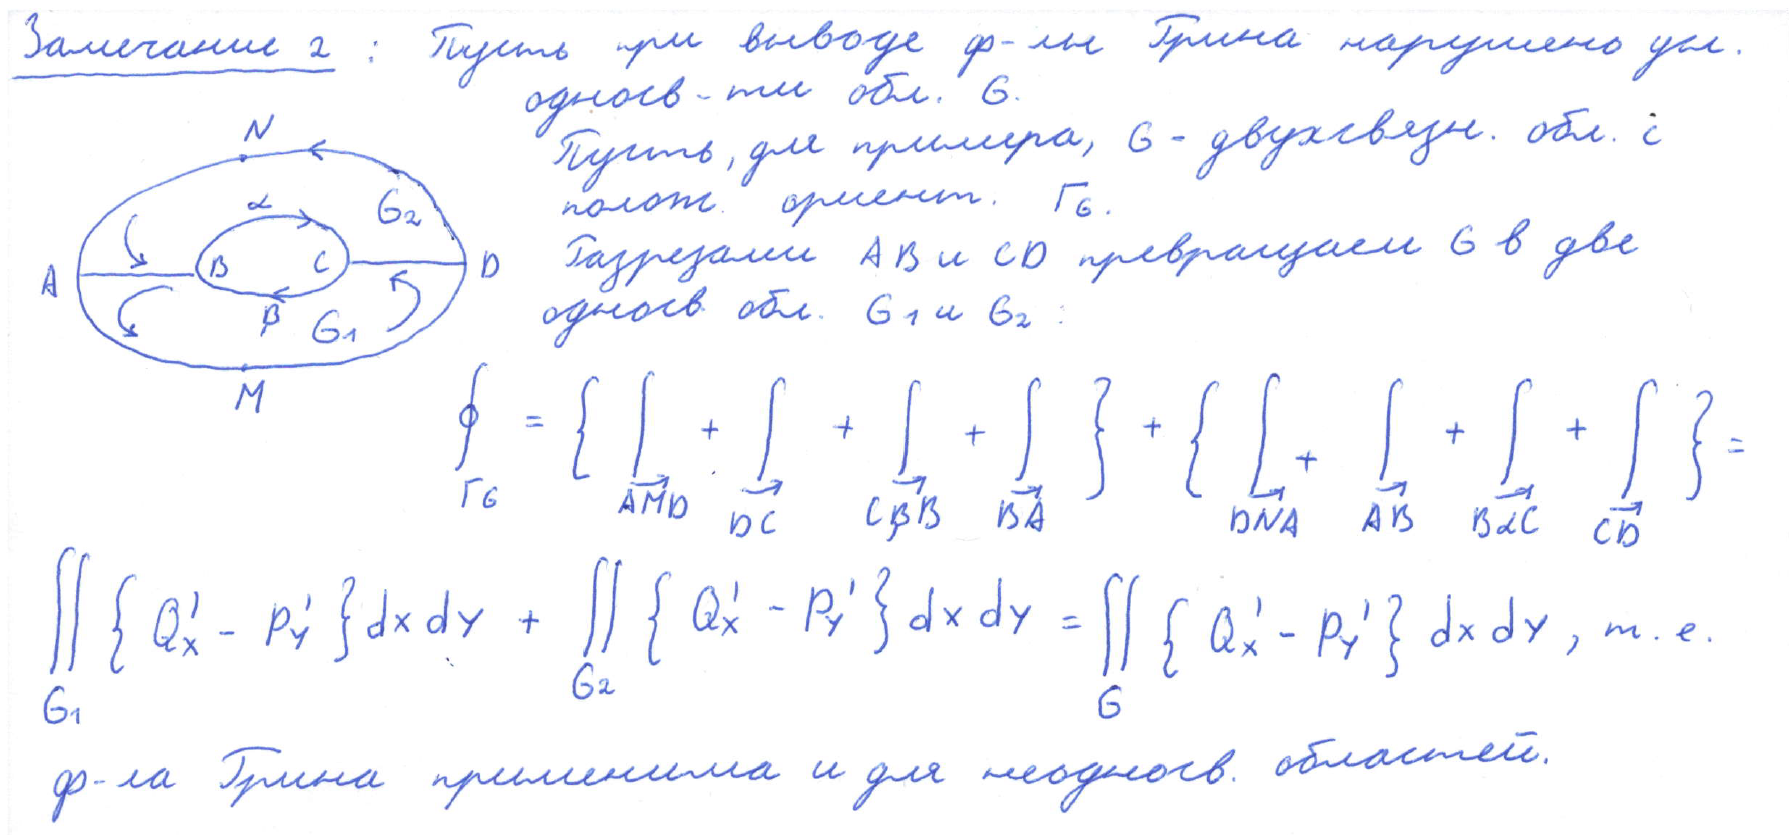 Замечание 2 : Пусть при выводе ф-лы Грина нарушено усл.
односв-ти обл. G.
Пусть, для примера, G - двухсвязн. обл. с
полож. ориент. Γ_G.
Разрезами AB и CD превращаем G в две
односв. обл. G_1 и G_2 :
N
α
G_2
A
B
C
D
β
G_1
M
∮_{Γ_G} = { ∫_{\overrightarrow{AMD}} + ∫_{\overrightarrow{DC}} + ∫_{\overrightarrow{CβB}} + ∫_{\overrightarrow{BA}} } + { ∫_{\overrightarrow{DNA}} + ∫_{\overrightarrow{AB}} + ∫_{\overrightarrow{BαC}} + ∫_{\overrightarrow{CD}} } =
∬_{G_1} { Q'_x - P'_y } dx dy + ∬_{G_2} { Q'_x - P'_y } dx dy = ∬_G { Q'_x - P'_y } dx dy , т. е.
ф-ла Грина применима и для неодносв. областей.